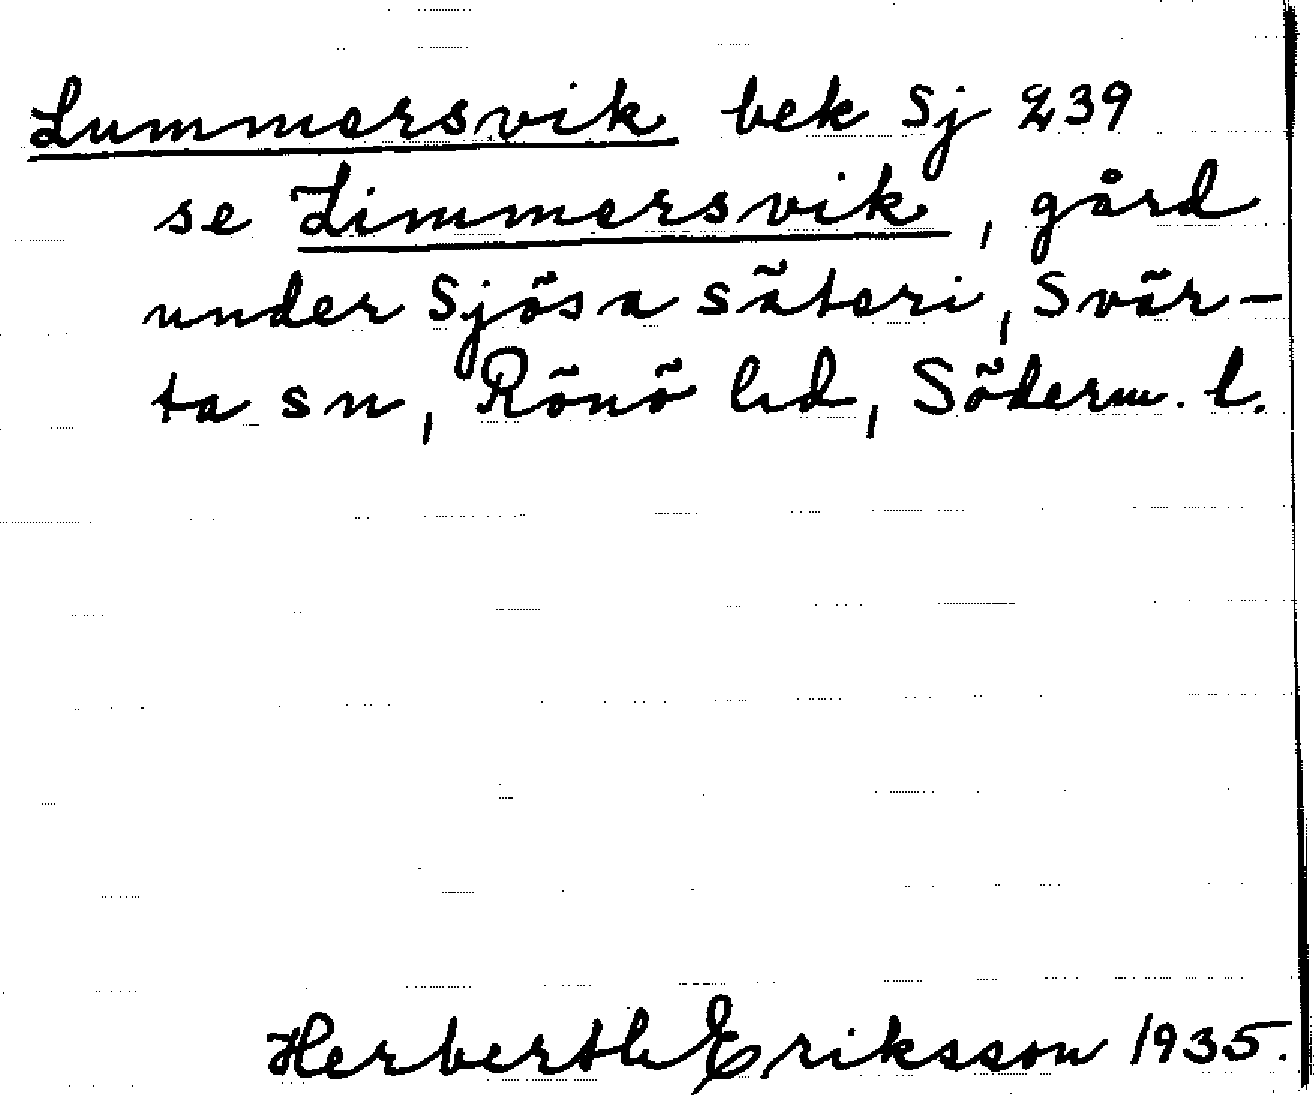 Lummersvik bek Sj 239
se Limmersvik, gård
under Sjösa säteri, Svär-
ta sn, Rönö hd, Söderm. l.
Herberth Eriksson 1935.